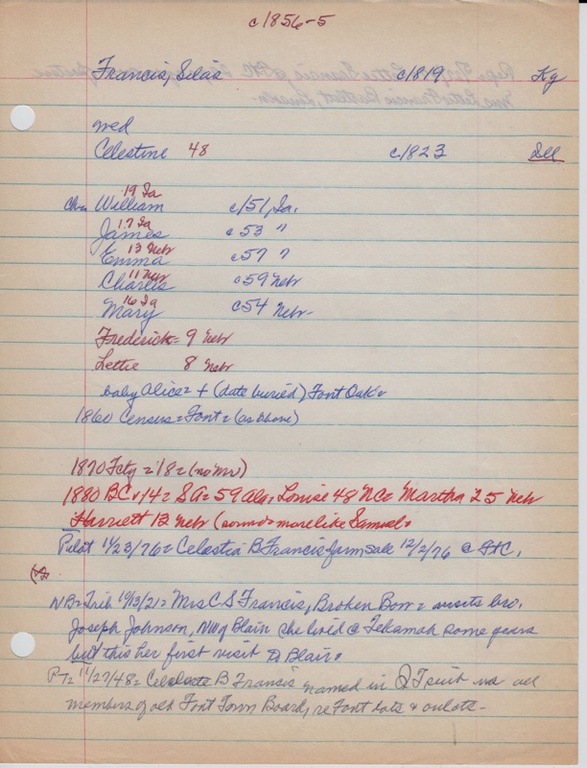 c/1856-5
Francis, Silas c/1819 Ky
wed
Celestine 48 c/1823 Ill
19 Ia
chn William c/51, Ia.
17 Ia
James c53 "
13 Nebr
Emma c57 "
11 Nebr
Charles c59 Nebr
16 Ia
Mary c54 Nebr-
Frederick = 9 Nebr
Lettie 8 Nebr
baby Alice = + (date buried) Font Oak=
1860 Census = Font = (as above)
1870 Fcty = 18 = (no mv)
1880 BC v 14 = SA = 59 Ala, Louise 48 NC = Martha 25 Nebr
Harriett 12 Nebr (sounds more like Samuel=
Pilot 11/23/76 = Celestia B Francis farm sale 12/2/76 @ FtC.
NB = Trib 10/13/21 = Mrs C S Francis, Broken Bow = visits bro.
Joseph Johnson, NW of Blair she lived @ Tekamah some years
but this her first visit to Blair=
PT = 11/27/48 = B Francis named in QT suit vs all
members of old Font Town Board, re Font lots & outlots-